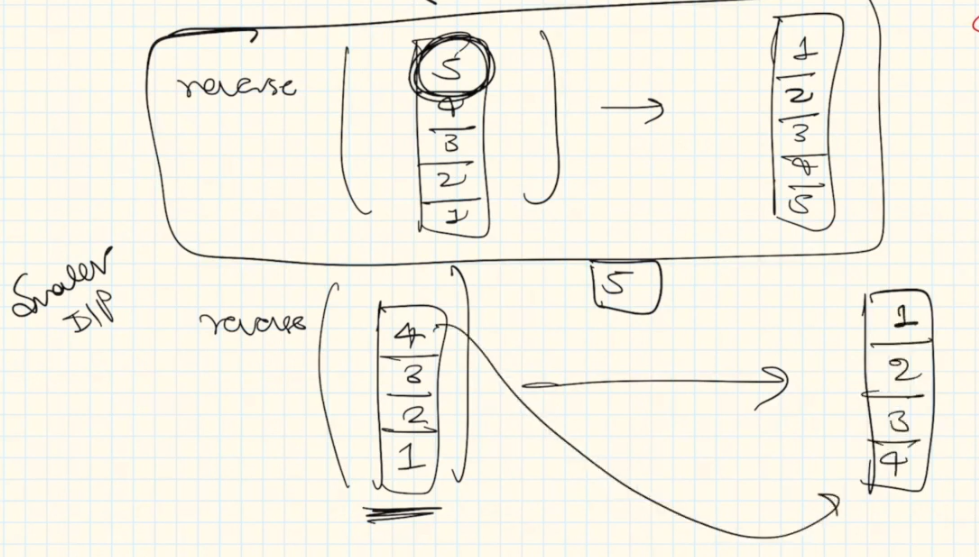 reverse
5
4
3
2
1
1
2
3
4
5
Smaller
I/P
5
reverse
4
3
2
1
1
2
3
4